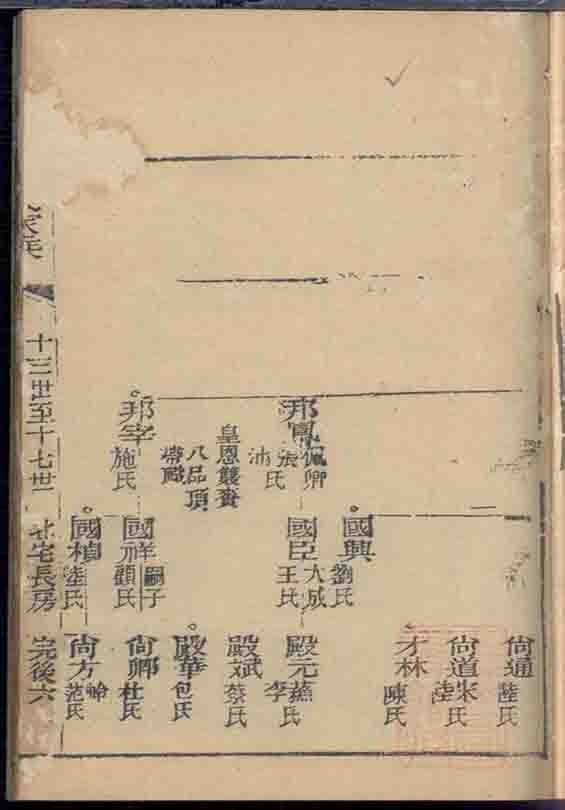 邦鳳
佩卿
張氏
沛
皇恩雙賚
八品頂
帶職
邦宰
施氏
國興
劉氏
國臣
大成
王氏
國祥
嗣子
顧氏
國楨
陸氏
尙通
陸氏
尙道
宋氏
陸
才林
陳氏
殿元
蘇氏
李
殿斌
蔡氏
殿華
包氏
尙卿
杜氏
尙方
范氏
家乘
十三世至十七世
北宅長房
完後六